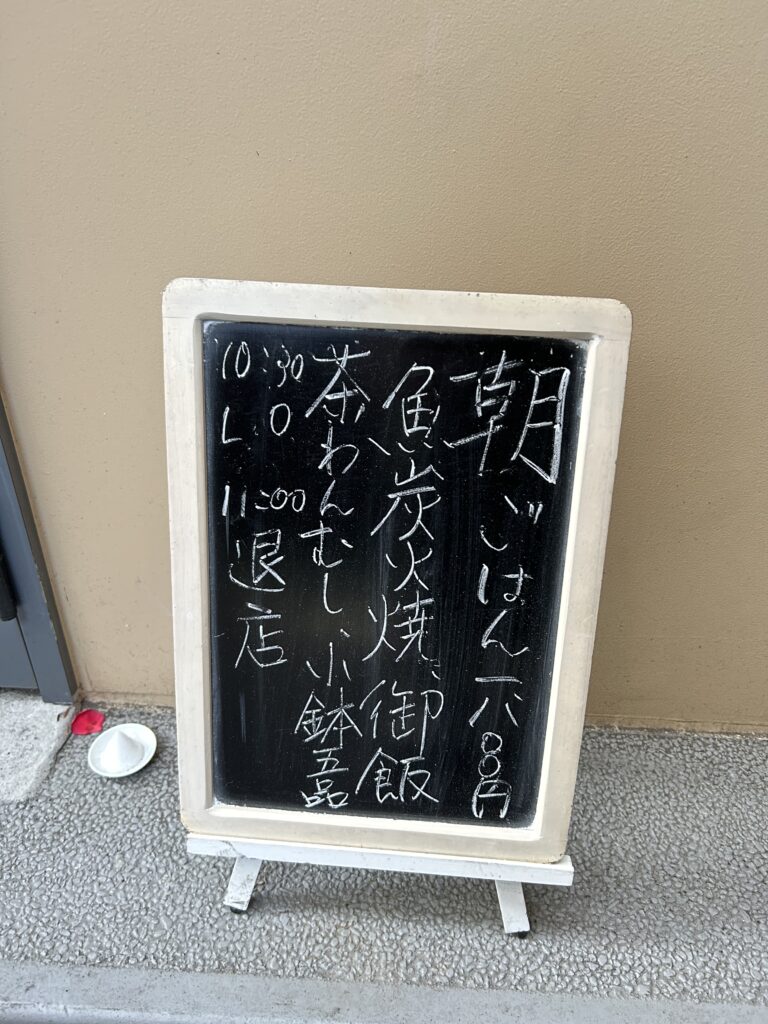 朝ごはん一六〇〇円
魚炭火焼、御飯
茶わんむし、小鉢五品
10:30
L.O
11:00
退店